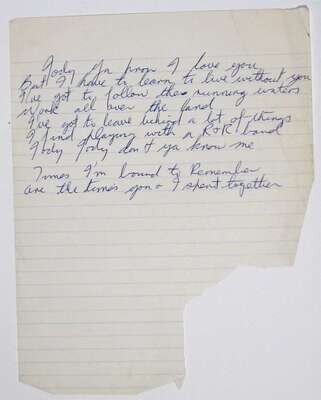 Jody you know I love you
But I have to learn to live without you
I've got to follow the running waters
Work all over the land
I've got to leave behind a lot of things
I find playing with a R&R band
Jody Jody don't ya know me
Times I'm bound to Remember
are the times you & I spent together